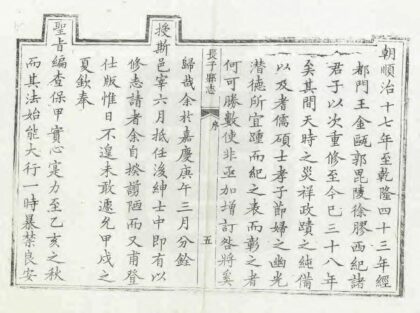 朝順治十七年至乾隆四十三年經
都門王金甌郭毘陵徐膠西紀諸
君子以次重修至今已三十八年
矣其間天時之災祥政蹟之純備
以及耆儒碩士孝子節婦之幽光
潛德所宜踵而紀之表而彰之者
何可勝數使非亟加增訂咎將奚
長子縣志
序
五
歸哉余於嘉慶庚午三月分銓
授斯邑宰六月抵任後紳士中即有以
修志請者余自揆譾陋而又甫登
仕版惟日不遑未敢遽允甲戌之
夏欽奉
聖旨編查保甲實心寔力至乙亥之秋
而其法始能大行一時暴禁良安